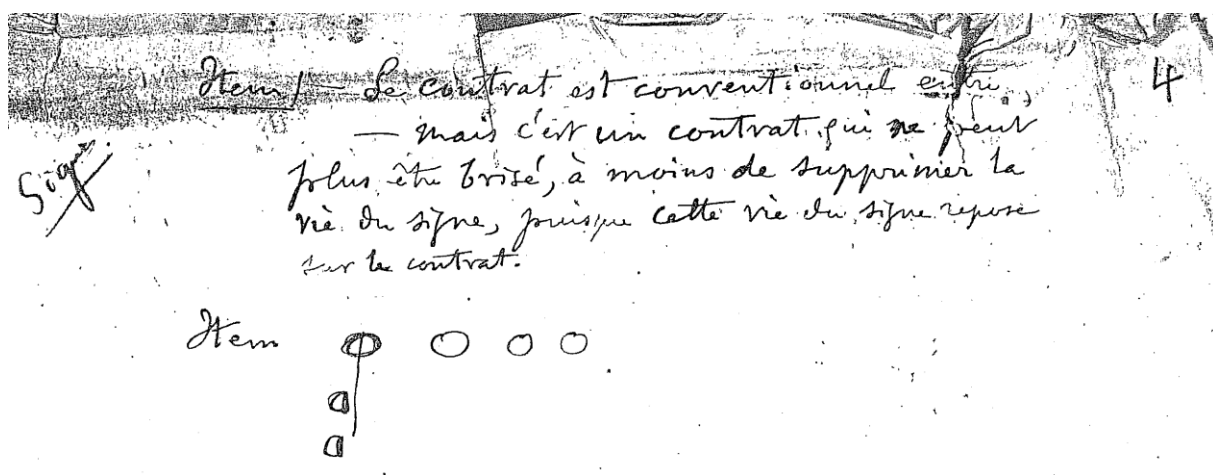 Item – Le contrat est conventionnel entre
4
– mais c'est un contrat qui ne peut
Signe
plus être brisé, à moins de supprimer la
vie du signe, puisque cette vie du signe repose
sur le contrat.
Item